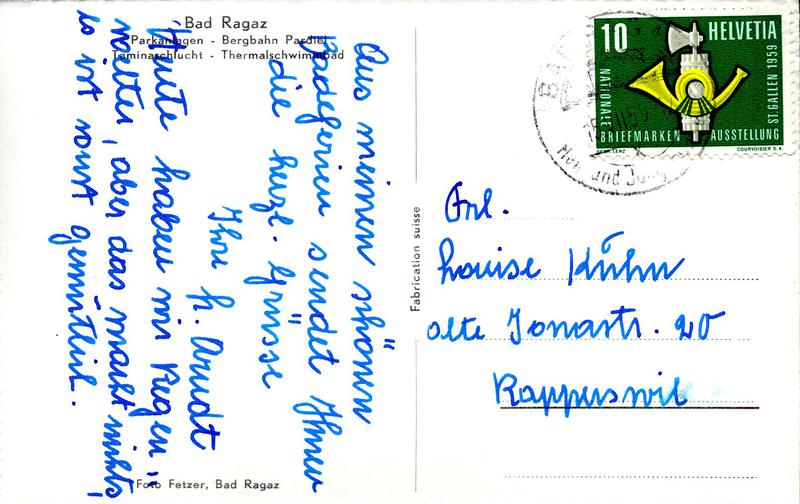 Bad Ragaz
Parkanlagen - Bergbahn Pardiel
Taminaschlucht - Thermalschwimmbad
Aus meinen schönen
Badeferien sendet Ihnen
die herzl. Grüsse
Ihre h. Arndt
Heute haben wir Regen-
wetter, aber das macht nichts,
es ist sonst gemütlich.
Foto Fetzer, Bad Ragaz
Fabrication suisse
10 HELVETIA
NATIONALE
BRIEFMARKEN AUSSTELLUNG
ST. GALLEN 1959
COURVOISIER S.A.
und
Frl.
Louise Kühn
alte Jonastr. 20
Rapperswil